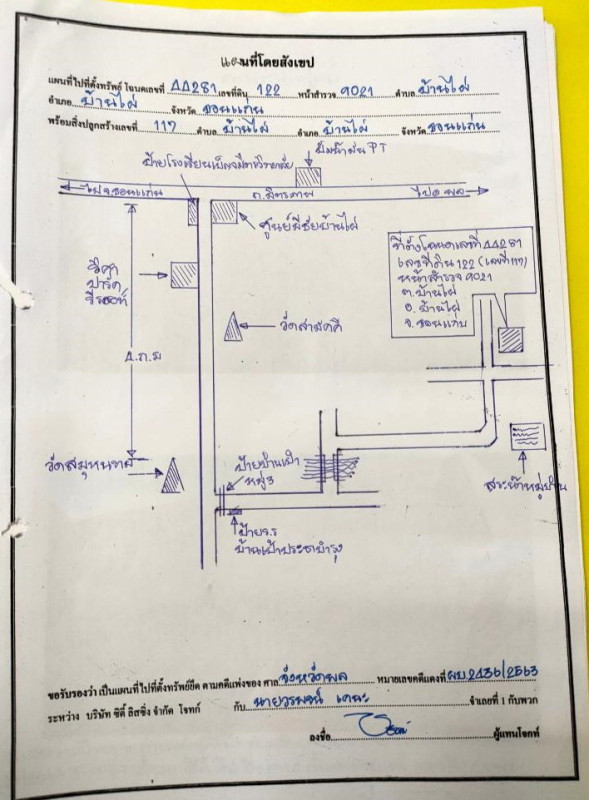 แผนที่โดยสังเขป
แผนที่ไปที่ตั้งทรัพย์ โฉนดเลขที่ 44281 เลขที่ดิน 122 หน้าสำรวจ 9021 ตำบล บ้านไผ่
อำเภอ บ้านไผ่ จังหวัด ขอนแก่น
พร้อมสิ่งปลูกสร้างเลขที่ 117 ตำบล บ้านไผ่ อำเภอ บ้านไผ่ จังหวัด ขอนแก่น
ปั๊มน้ำมัน PT
ป้ายโรงเรียน
ไป จ.ขอนแก่น
ถ.มิตรภาพ
ไป อ.พล
ศูนย์มีชัยบ้านไผ่
ที่ตั้งโฉนดเลขที่ 44281
เลขที่ดิน 122 (เลขที่ 117)
หน้าสำรวจ 9021
ต.บ้านไผ่
อ.บ้านไผ่
จ.ขอนแก่น
ปาร์ค
รีสอร์ท
วัดสามัคคี
4 ก.ม
ป้ายบ้านเป้า
หมู่3
สระน้ำหมู่บ้าน
ป้าย ร.ร
บ้านเป้าประชาบำรุง
ขอรับรองว่า เป็นแผนที่ไปที่ตั้งทรัพย์ยึด ตามคดีแพ่งของ ศาล จังหวัดพล หมายเลขคดีแดงที่ ผบ 2436/2563
ระหว่าง บริษัท ซิตี้ ลิสซิ่ง จำกัด โจทก์ กับ นายวรพจน์ จำเลยที่ 1 กับพวก
ลงชื่อ ผู้แทนโจทก์